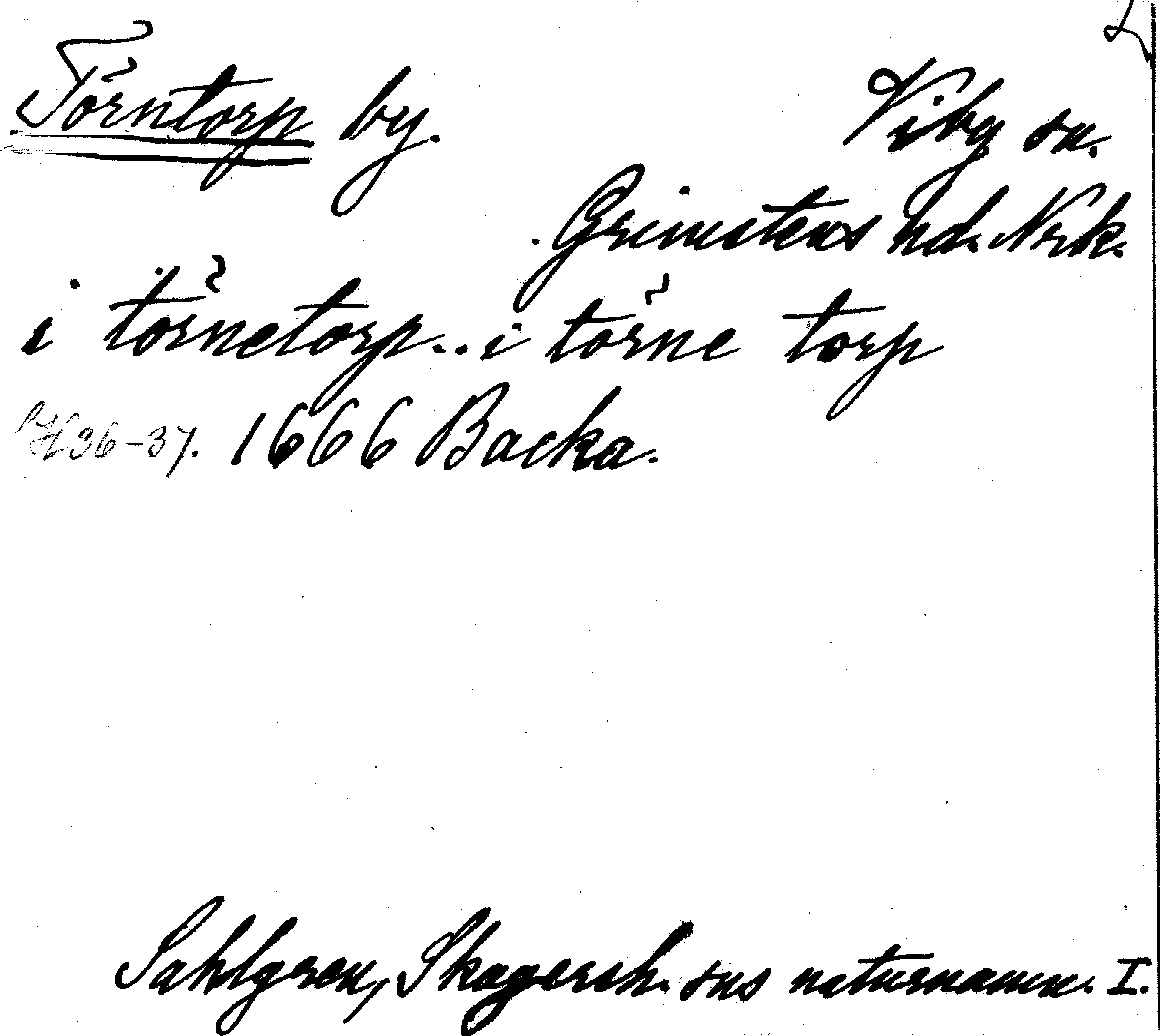 Törntorp by. Viby sn.
Grimstens hd. Nrk.
i törnetorp .. i törne torp
H 36-37. 1666 Backa.
Sahlgren, Skagersh. sns naturnamn. I.